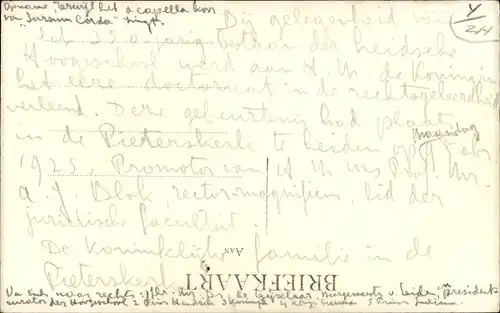 Opname terwijl het a capella koor
van "Sursum Corda" zingt.
Y/24
Bij gelegenheid van
het 350 jarig bestaan der Leidsche
Hoogeschool werd aan H. M. de Koningin
het eere doctoraat in de rechtsgeleerdheid
verleend. Deze gebeurtenis had plaats
in de Pieterskerk te Leiden op Febr
1925. Promotor van H M was Prof. Mr.
A. J. Blok, rector-magnificus, lid der
juridische faculteit.
De Koninklijke familie in de
Pieterskerk.
Aan
BRIEFKAART
Van links naar rechts: Jhr. Mr. Dr. de Gijselaar, Burgemeester v. Leiden en President
curator der Hoogeschool 2 Prins Hendrik 3 Koningin 4 Kon. Emma 5 Prins. Juliana